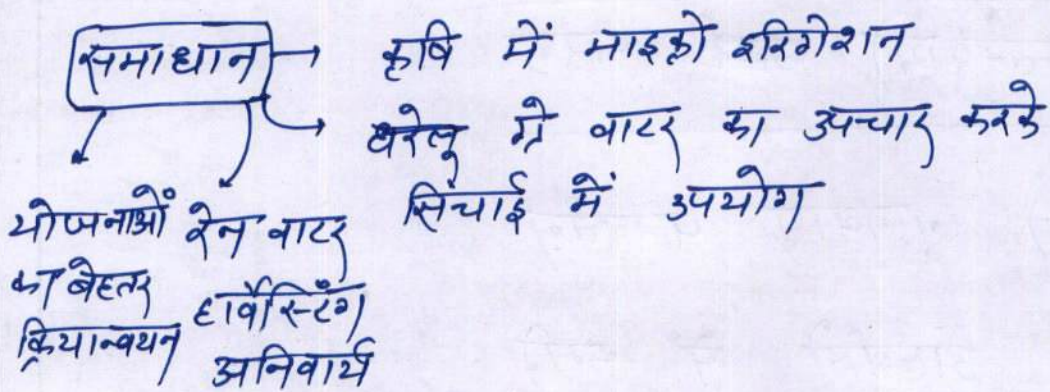 समाधान → कृषि में माइक्रो इरिगेशन
→ घरेलू ग्रे वाटर का उपचार करके
सिंचाई में उपयोग
योजनाओं
का बेहतर
क्रियान्वयन
रेन वाटर
हार्वेस्टिंग
अनिवार्य